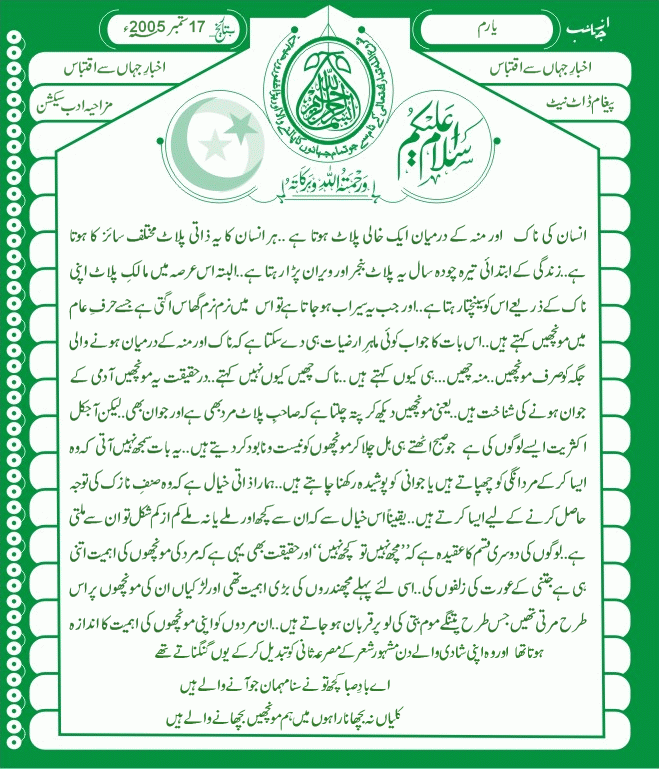 از جانب
یارم
بتاریخ 17 ستمبر 2005ء
اخبار جہاں سے اقتباس
اخبار جہاں سے اقتباس
پیغام ڈاٹ نیٹ
مزاحیہ ادب سیکشن
السلام علیکم
ورحمتہ اللہ وبرکاتہ
انسان کی ناک اور منہ کے درمیان ایک خالی پلاٹ ہوتا ہے ..ہر انسان کا یہ ذاتی پلاٹ مختلف سائز کا ہوتا
ہے..زندگی کے ابتدائی تیرہ چودہ سال یہ پلاٹ بنجر اور ویران پڑا رہتا ہے..البتہ اس عرصہ میں مالکِ پلاٹ اپنی
ناک کے ذریعے اس کو سینچتا رہتا ہے..اور جب یہ سیراب ہو جاتا ہے تو اس میں نرم نرم گھاس اگتی ہے جسے حرفِ عام
میں مونچھیں کہتے ہیں..اس بات کا جواب کوئی ماہرِ ارضیات ہی دے سکتا ہے کہ ناک اور منہ کے درمیان ہونے والی
جگہ کو صرف مونچھیں..منہ چھیں...ہی کیوں کہتے ہیں ..ناک چھیں کیوں نہیں کہتے..در حقیقت یہ مونچھیں آدمی کے
جوان ہونے کی شناخت ہیں..یعنی مونچھیں دیکھ کر پتہ چلتا ہے کہ صاحبِ پلاٹ مرد بھی ہے اور جوان بھی..لیکن آجکل
اکثریت ایسے لوگوں کی ہے جو صبح اٹھتے ہی ہل چلا کر مونچھوں کو نیست و نابود کر دیتے ہیں..یہ بات سمجھ نہیں آتی کہ وہ
ایسا کر کے مردانگی کو چھپاتے ہیں یا جوانی کو پوشیدہ رکھنا چاہتے ہیں..ہمارا ذاتی خیال ہے کہ وہ صنف نازک کی توجہ
حاصل کرنے کے لیے ایسا کرتے ہیں..یقیناً اس خیال سے کہ ان سے کچھ اور ملے یا نہ ملے کم از کم شکل تو ان سے ملتی
ہے..لوگوں کی دوسری قسم کا عقیدہ ہے کہ ”مچھ نہیں تو کچھ نہیں“ اور حقیقت بھی یہی ہے کہ مرد کی مونچھوں کی اہمیت اتنی
ہی ہے جتنی کے عورت کی زلفوں کی..اسی لئے پہلے مچھندروں کی بڑی اہمیت تھی اور لڑکیاں ان کی مونچھوں پر اس
طرح مرتی تھیں جس طرح پتنگے موم بتی کی لو پر قربان ہو جاتے ہیں..ان مردوں کو اپنی مونچھوں کی اہمیت کا اندازہ
ہوتا تھا اور وہ اپنی شادی والے دن مشہور شعر کے مصرعہ ثانی کو تبدیل کر کے یوں گنگناتے تھے
اے بادِ صبا کچھ تو نے سنا مہمان جو آنے والے ہیں
کلیاں نہ بچھانا راہوں میں ہم مونچھیں بچھانے والے ہیں